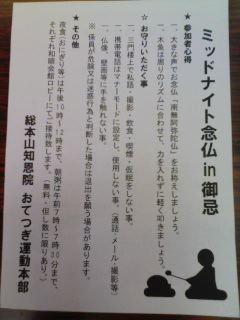 ミッドナイト念仏 in 御忌
★ 参加者心得
一、大きな声でお念仏「南無阿弥陀仏」をお称えしましょう。
一、木魚は周りのリズムに合わせて、力を入れずに軽く叩きましょう。
★ お守りいただく事
一、三門楼上で私語・撮影・飲食・喫煙・仮眠をしない事。
一、携帯電話はマナーモードに設定し、使用しない事。（通話・メール・撮影等）
一、仏像、壁画等に手を触れない事。
※ 係員が危険又は迷惑行為と判断した場合は退出を願う場合があります。
★ その他
夜食（おにぎり等）は午後10～12時まで、朝粥は午前7時～7時30分まで、
それぞれ和順会館ロビーにてご接待致します。（無料・但し数に限りあり。）
総本山知恩院 おてつぎ運動本部